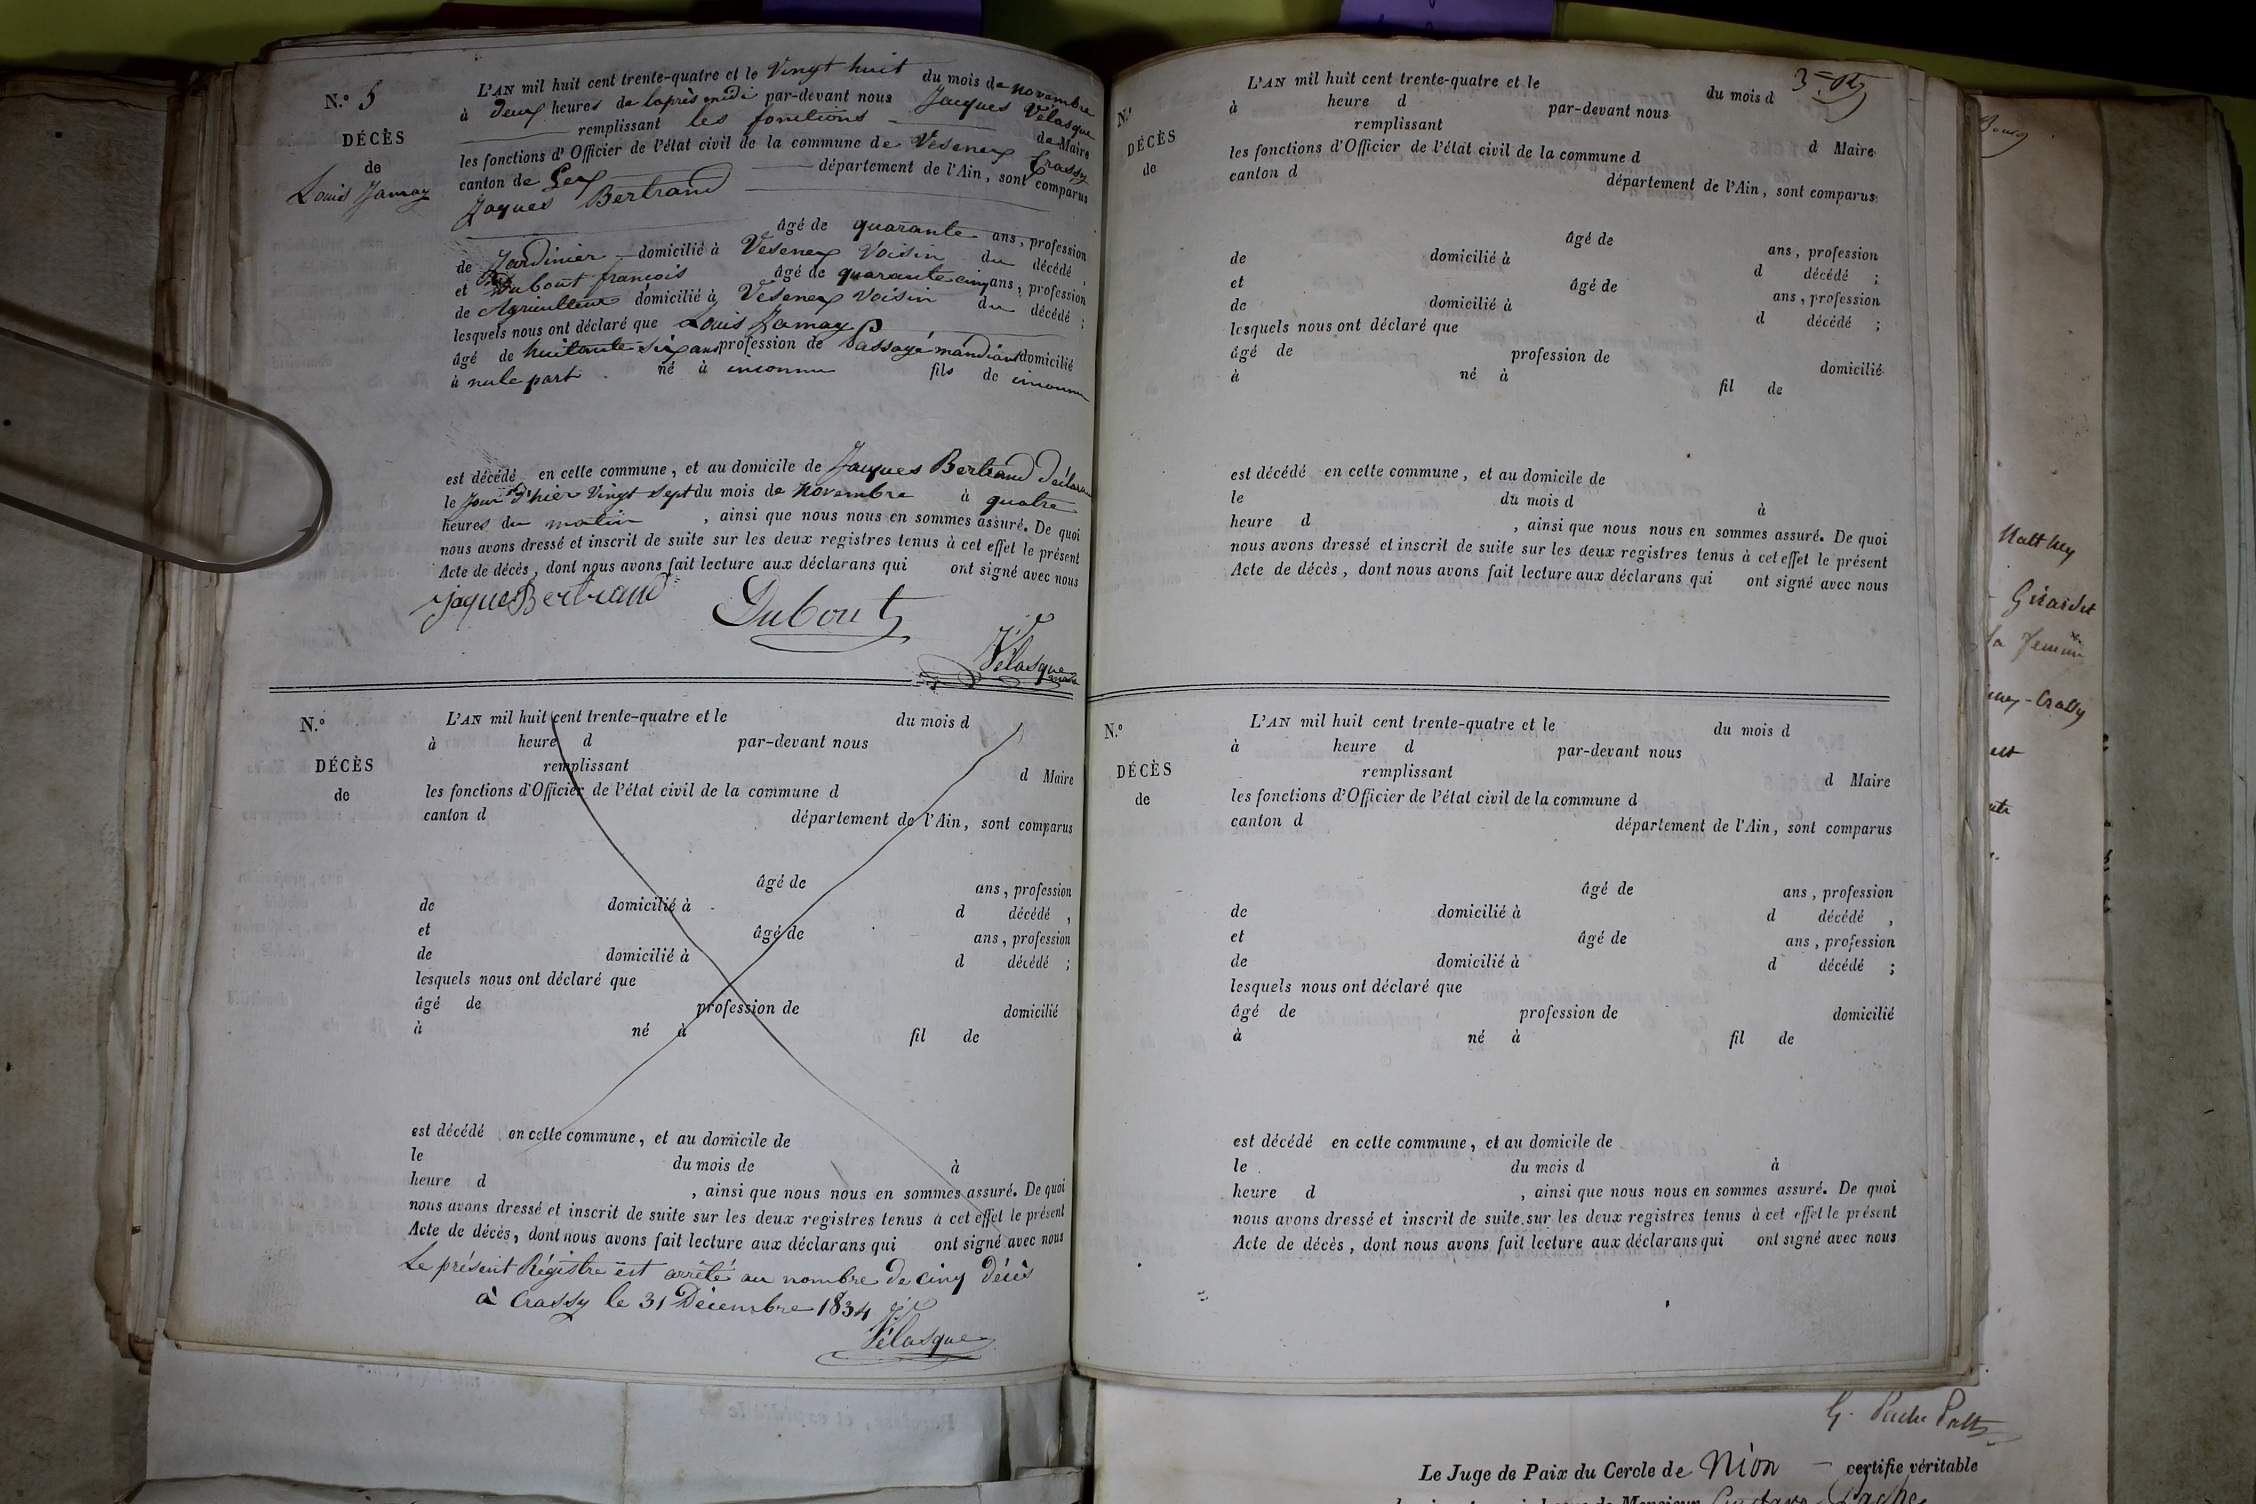 N.º 5
DÉCÈS
de
Louis Jamay
L'AN mil huit cent trente-quatre et le Vingt huit du mois de novembre
à deux heures de laprès midi par-devant nous Jacques Vélasque
remplissant les fonctions de Maire
les fonctions d'Officier de l'état civil de la commune de Vesenex Crassy
canton de Gex département de l'Ain, sont comparus
Jaques Bertrand
âgé de quarante ans, profession
de Jardinier domicilié à Vesenex Voisin du décédé,
et Dubout françois âgé de quarante cinq ans, profession
de Agriculteur domicilié à Vesenex Voisin du décédé;
lesquels nous ont déclaré que Louis Jamay
âgé de huitante six ans profession de Passagé mandiant domicilié
à nule part né à inconnu fils de inconnu
est décédé en cette commune, et au domicile de Jacques Bertrand déclarant
le Jour d'hier Vingt sept du mois de novembre à quatre
heures du matin, ainsi que nous nous en sommes assuré. De quoi
nous avons dressé et inscrit de suite sur les deux registres tenus à cet effet le présent
Acte de décès, dont nous avons fait lecture aux déclarans qui ont signé avec nous
Jaques Bertrand
Dubout
Vélasque
maire
N.º
DÉCÈS
de
L'AN mil huit cent trente-quatre et le du mois d
à heure d par-devant nous
remplissant d Maire
les fonctions d'Officier de l'état civil de la commune d
canton d département de l'Ain, sont comparus
âgé de ans, profession
de domicilié à d décédé,
et âgé de ans, profession
de domicilié à d décédé;
lesquels nous ont déclaré que
âgé de profession de domicilié
à né à fil de
est décédé en cette commune, et au domicile de
le du mois de à
heure d, ainsi que nous nous en sommes assuré. De quoi
nous avons dressé et inscrit de suite sur les deux registres tenus à cet effet le présent
Acte de décès, dont nous avons fait lecture aux déclarans qui ont signé avec nous
Le présent Régistre est arrêté au nombre de cinq décès
à Crassy le 31 Décembre 1834
Vélasque
N.º
DÉCÈS
de
L'AN mil huit cent trente-quatre et le du mois d
à heure d par-devant nous
remplissant d Maire
les fonctions d'Officier de l'état civil de la commune d
canton d département de l'Ain, sont comparus
âgé de ans, profession
de domicilié à d décédé;
et âgé de ans, profession
de domicilié à d décédé;
lesquels nous ont déclaré que
âgé de profession de domicilié
à né à fil de
est décédé en cette commune, et au domicile de
le du mois d à
heure d, ainsi que nous nous en sommes assuré. De quoi
nous avons dressé et inscrit de suite sur les deux registres tenus à cet effet le présent
Acte de décès, dont nous avons fait lecture aux déclarans qui ont signé avec nous
N.º
DÉCÈS
de
L'AN mil huit cent trente-quatre et le du mois d
à heure d par-devant nous
remplissant d Maire
les fonctions d'Officier de l'état civil de la commune d
canton d département de l'Ain, sont comparus
âgé de ans, profession
de domicilié à d décédé,
et âgé de ans, profession
de domicilié à d décédé;
lesquels nous ont déclaré que
âgé de profession de domicilié
à né à fil de
est décédé en cette commune, et au domicile de
le du mois d à
heure d, ainsi que nous nous en sommes assuré. De quoi
nous avons dressé et inscrit de suite sur les deux registres tenus à cet effet le présent
Acte de décès, dont nous avons fait lecture aux déclarans qui ont signé avec nous
Matthey
Girardet
Crassy
Le Juge de Paix du Cercle de Nion certifie véritable